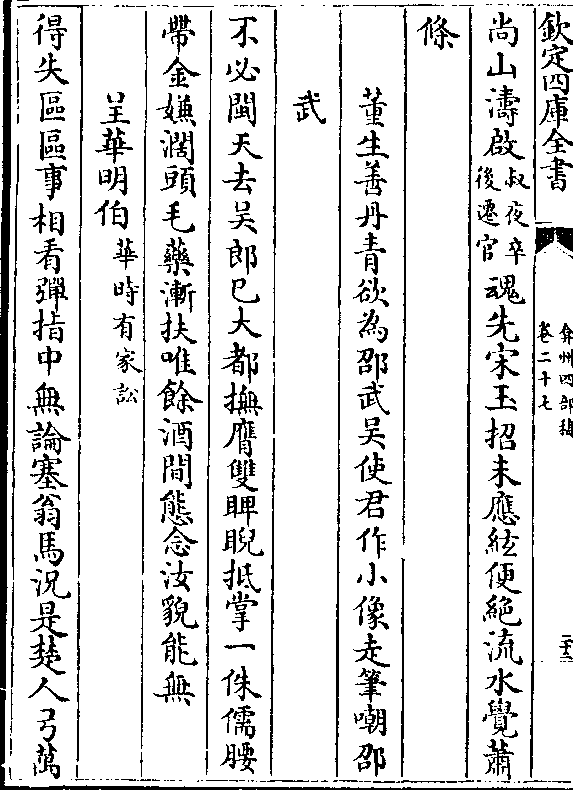 欽定四庫全書
弇州四部稿
卷二十七
二十三
尚山濤啟叔夜卒後遷官魂先宋玉招未應絃便絶流水覺蕭
條
董生善丹青欲為邵武吴使君作小像走筆嘲邵
武
不必閩天去吴郎已大都撫膺雙睥睨抵掌一侏儒腰
帶金嫌濶頭毛藥漸扶唯餘酒間態念汝貌能無
呈華明伯華時有家訟
得失區區事相看彈指中無論塞翁馬況是楚人弓萬